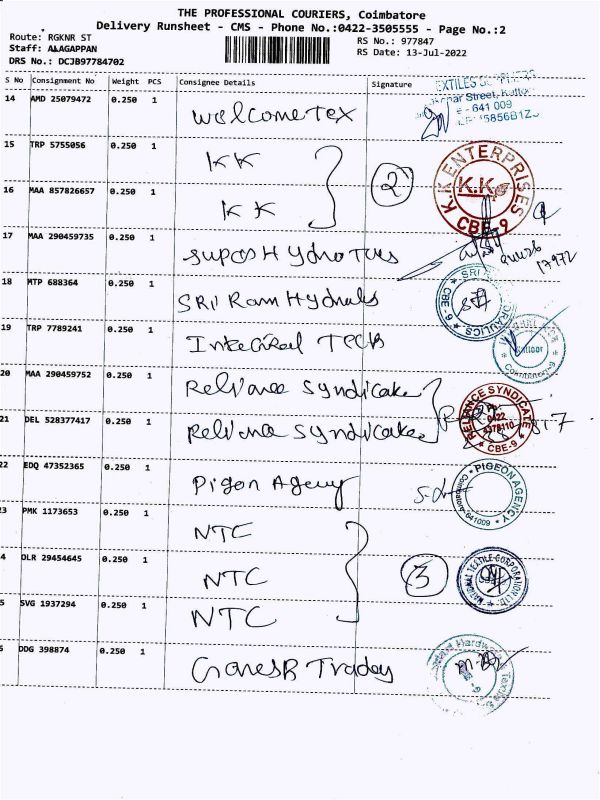 THE PROFESSIONAL COURIERS, Coimbatore
Delivery Runsheet - CMS - Phone No.:0422-3505555 - Page No.:2
Route: RGKNR ST
RS No.: 977847
Staff: ALAGAPPAN
RS Date: 13-Jul-2022
DRS No.: DCJB97784702
S No Consignment No Weight PCS Consignee Details Signature
14 AMD 25079472 0.250 1 Welcome Tex
641 009
15 TRP 5755056 0.250 1 KK
2
K.K ENTERPRISES
K.K
CBE-9
16 MAA 857826657 0.250 1 KK
17 MAA 290459735 0.250 1
18 MTP 688364 0.250 1 SRI Ram Hydrals
19 TRP 7789241 0.250 1 Integral Tech
20 MAA 290459752 0.250 1 Reliance Syndicate
21 DEL 528377417 0.250 1 Reliance Syndicate
RELIANCE SYNDICATE
0422
CBE-9
22 EDQ 47352365 0.250 1 Pigon Agency
PIGEON AGENCY
Coimbatore-641009
23 PMK 1173653 0.250 1 NTC
4 DLR 29454645 0.250 1 NTC
3
NATIONAL TEXTILE CORPORATION LTD.
5 SVG 1937294 0.250 1 NTC
6 DDG 398874 0.250 1